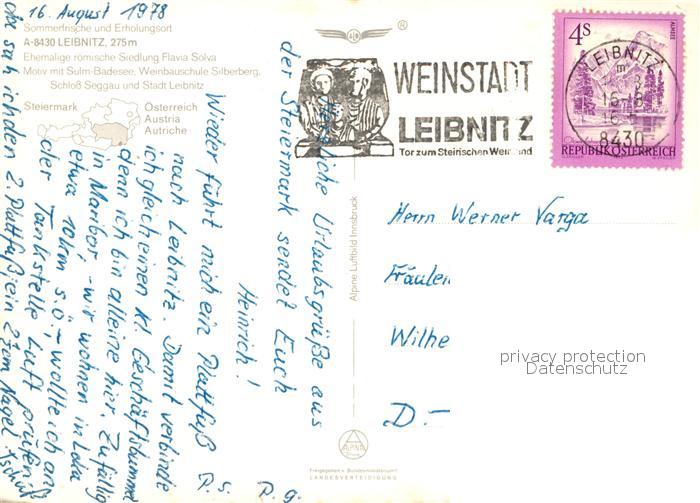 16. August 1978
Sommerfrische und Erholungsort
A-8430 LEIBNITZ, 275 m
Ehemalige römische Siedlung Flavia Solva
Motiv mit Sulm-Badesee, Weinbauschule Silberberg,
Schloß Seggau und Stadt Leibnitz
Steiermark
Österreich
Austria
Autriche
®
WEINSTADT
LEIBNITZ
Tor zum Steirischen Weinland
4S
ALMSEE
REPUBLIK ÖSTERREICH
LEIBNITZ
8430
Herzliche Urlaubsgrüße aus
der Steiermark sendet Euch
Heinrich!
P.S.
Wieder führt mich ein Plattfuß
nach Leibnitz. Damit verbinde
ich gleich einen kl. Geschäftsbummel
denn ich bin alleine hier. Zufällig
in Maribor - wir wohnen in Loka
etwa 10km s.ö. - wollte ich an
der Tankstelle Luft prüfen,
da sah ich den 2. Plattfuß, ein 27cm Nagel. Tschüß
Alpine Luftbild Innsbruck
ALPINE
Freigegeben v. Bundesministerium f.
LANDESVERTEIDIGUNG
Herrn Werner Varga
Fräulein
Wilhe
D.-
privacy protection
Datenschutz